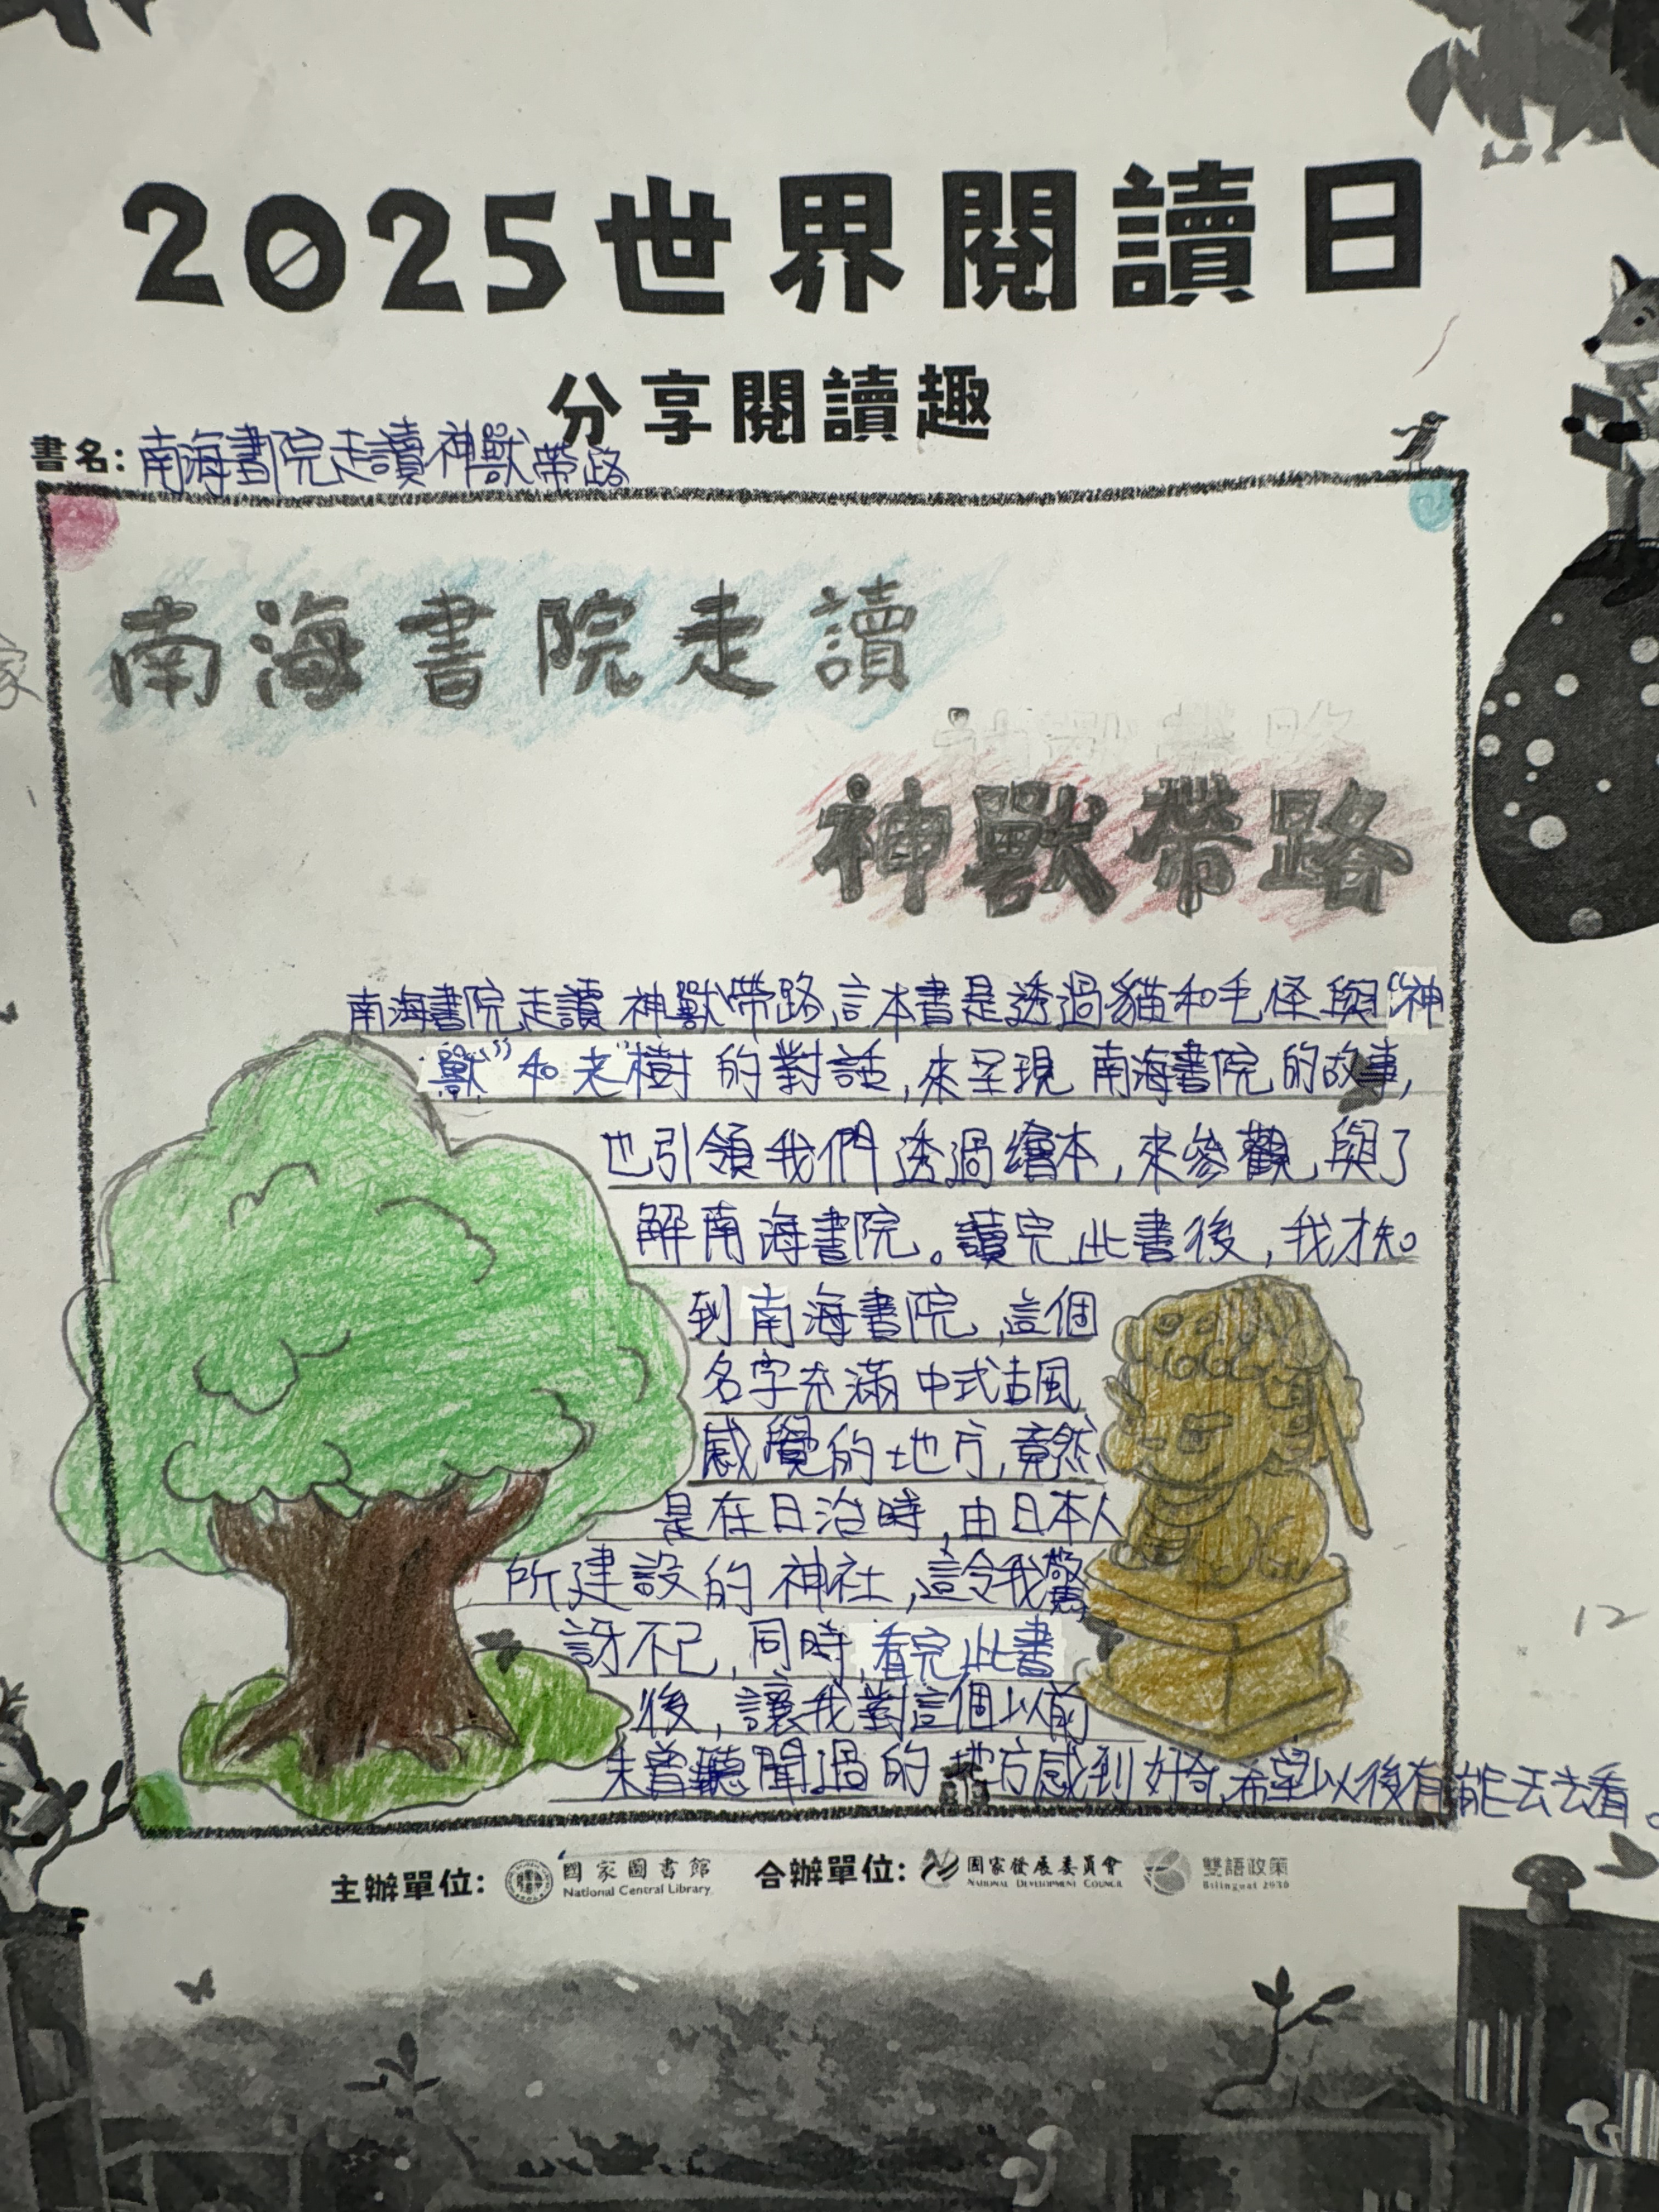 2025世界閱讀日
分享閱讀趣
書名：南海書院走讀神獸帶路
南海書院走讀
神獸帶路
南海書院走讀 神獸帶路,這本書是透過貓和毛怪與“神
獸”和老樹的對話,來呈現 南海書院的故事,
也引領我們透過繪本,來參觀與了
解南海書院。讀完此書後,我才知
到南海書院,這個
名字充滿中式古風
感覺的地方,竟然
是在日治時,由日本人
所建設的神社,這令我驚
訝不已,同時,看完此書
後,讓我對這個以前
未曾聽聞過的地方感到好奇,希望以後有能去去看。
主辦單位：國家圖書館 National Central Library 合辦單位：國家發展委員會 National Development Council 雙語政策 Bilingual 2030
12
家